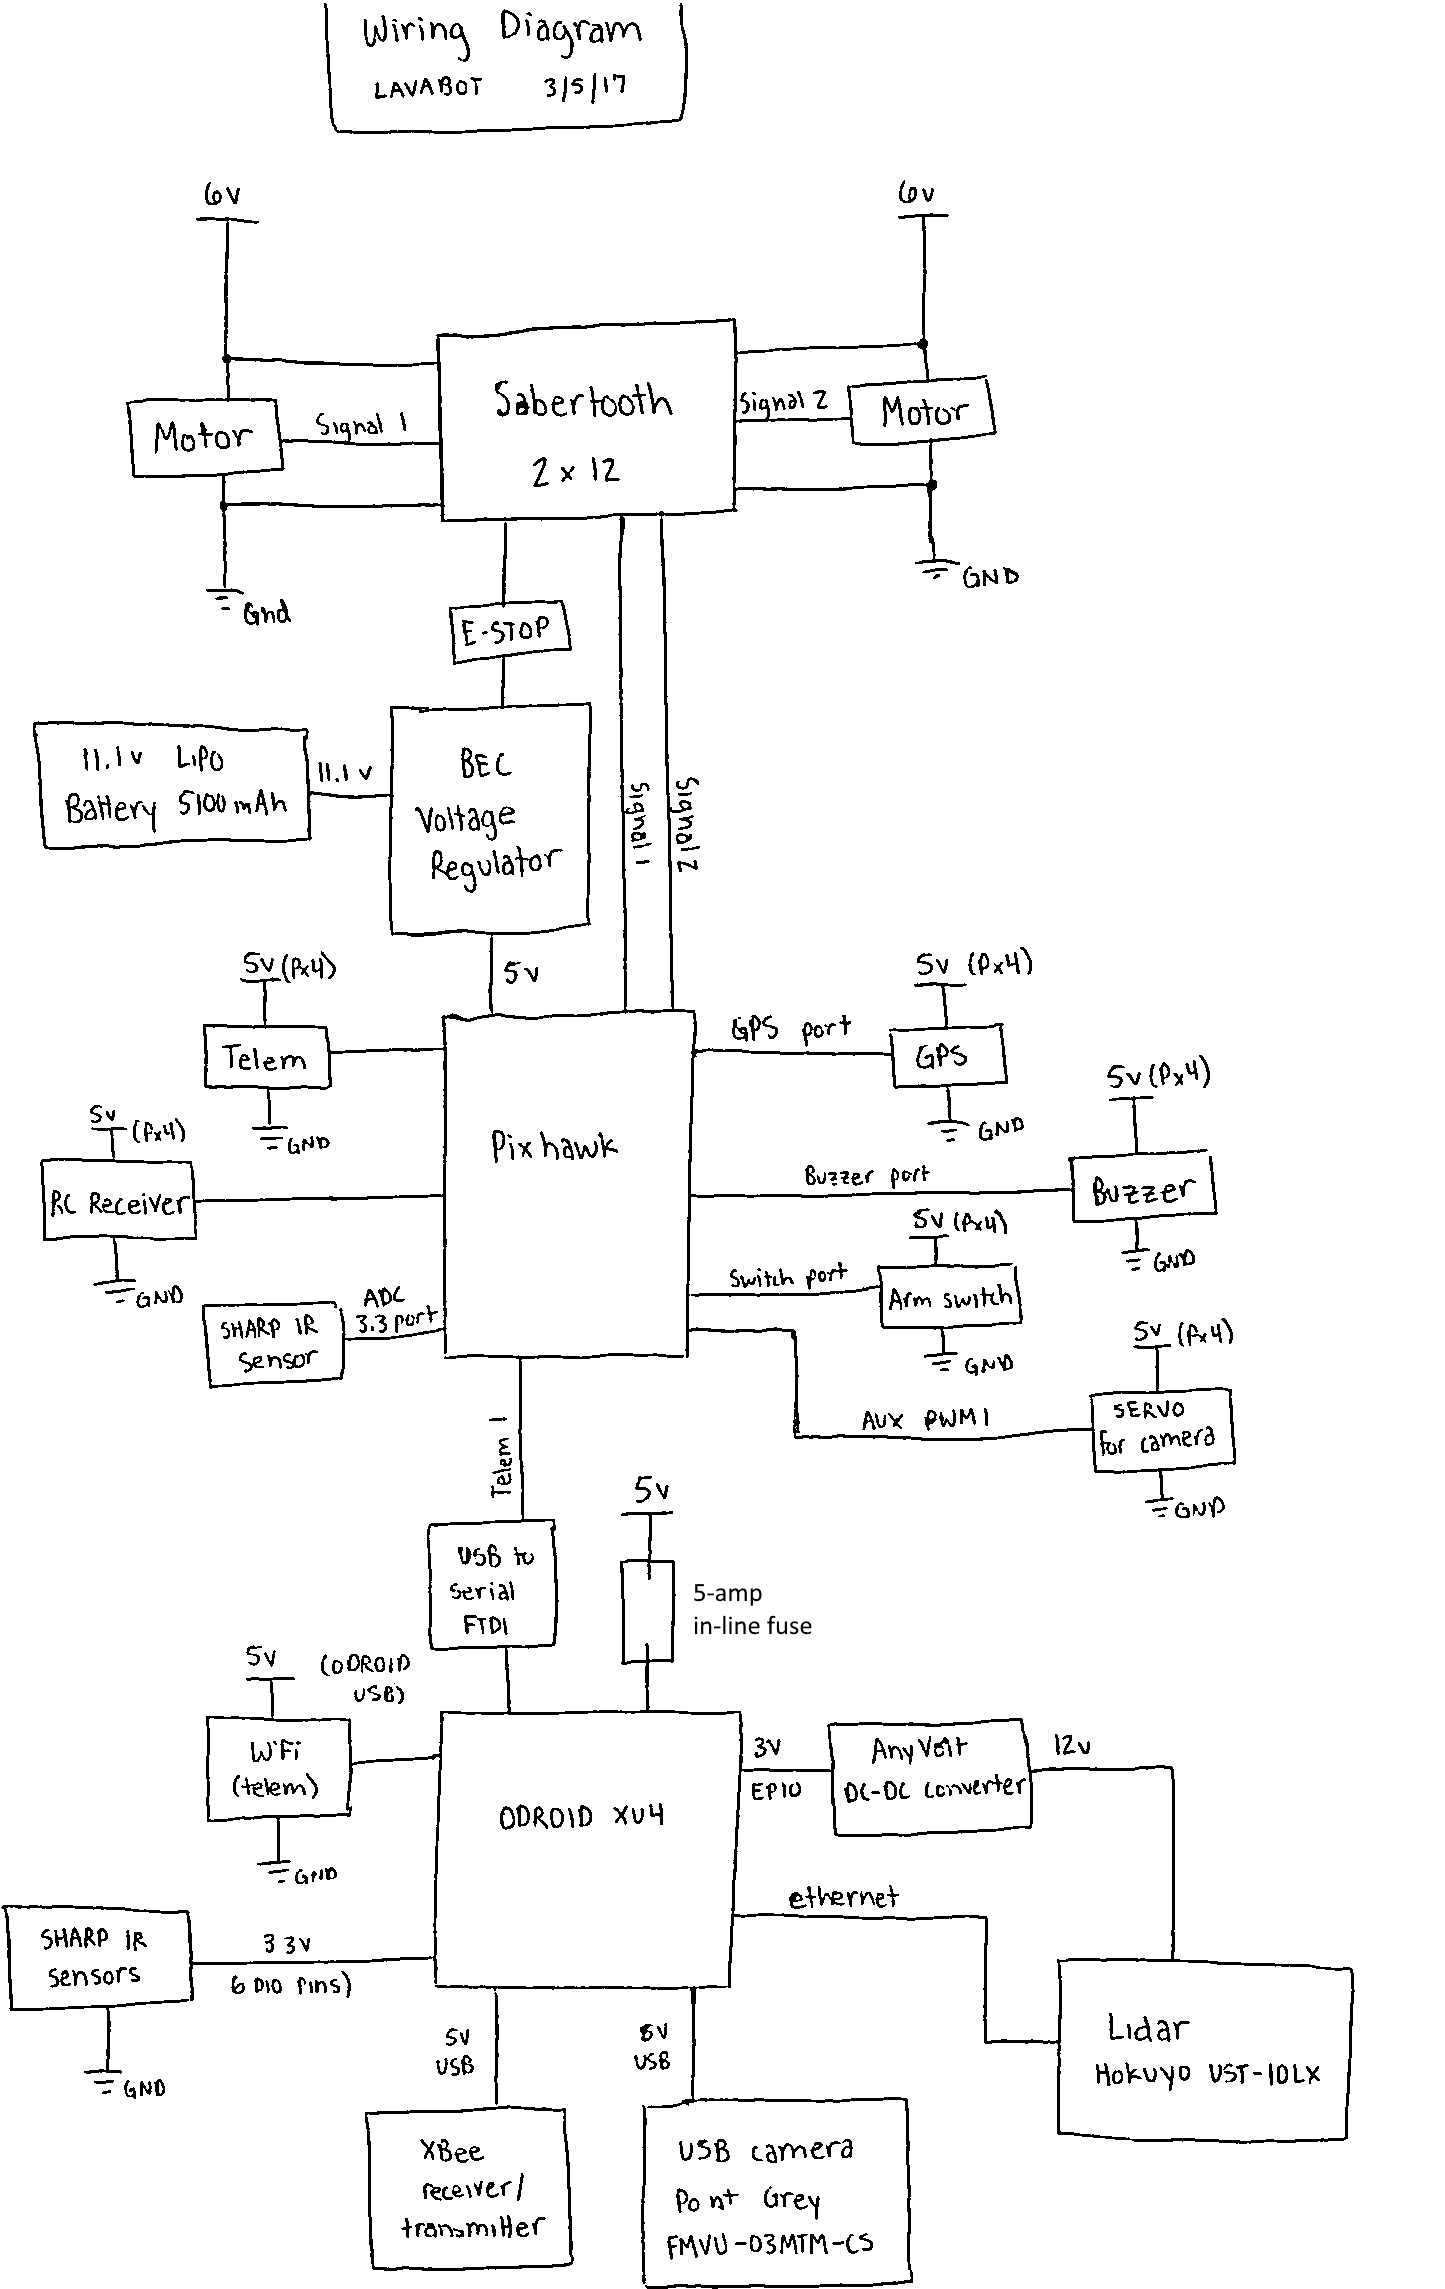 Wiring Diagram
LAVABOT 3/5/17
6V
6V
Sabertooth
2 x 12
Motor
Signal 1
Signal 2
Motor
Gnd
GND
E-STOP
11.1v LiPO
Battery 5100mAh
11.1 v
BEC
Voltage
Regulator
Signal 1
Signal 2
5v
5v (Px4)
Telem
GND
5v (Px4)
GPS port
GPS
GND
5v
(Px4)
RC Receiver
GND
Pixhawk
5v (Px4)
Buzzer port
Buzzer
GND
5V (Px4)
Switch port
Arm switch
GND
SHARP IR
Sensor
ADC
3.3 port
5v (Px4)
AUX PWM1
SERVO
for camera
GND
Telem 1
5v
USB to
Serial
FTDI
5-amp
in-line fuse
5v
(ODROID
USB)
WiFi
(telem)
GND
ODROID XU4
3V
EPIO
AnyVolt
DC-DC Converter
12v
ethernet
SHARP IR
Sensors
3.3V
6 DIO Pins)
GND
Lidar
Hokuyo UST-10LX
5V
USB
5V
USB
XBee
receiver/
transmitter
USB camera
Point Grey
FMVU-03MTM-CS